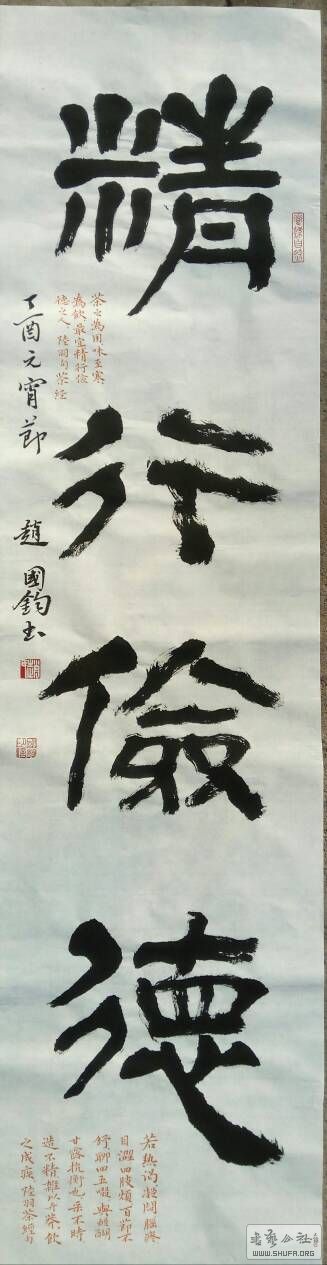 精行儉德
茶之為用味至寒
為飲最宜精行儉
德之人 陸羽句茶經
丁酉元宵節 趙國鈞書
若熱渴凝悶腦疼
目澀四肢煩百節不
舒聊四五啜與醍醐
甘露抗衡也采不時
造不精雜以卉莽飲
之成疾陸羽茶經句
書藝公社
WWW.SHUFA.ORG